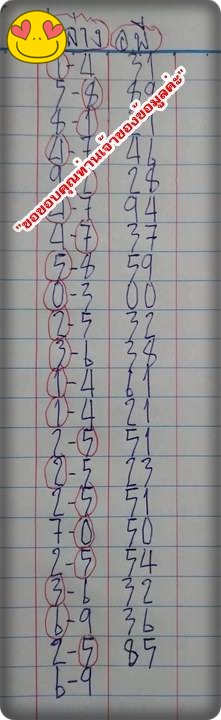 ล่าง อพี
1-4 31
5-8 89
4-7
4-
9- 28
4-7 94
4-7 37
5-8 59
0-3 00
2-5 32
3-6 38
1-4 61
1-4 21
2-5 51
2-5 23
2-5 51
7-0 50
2-5 54
3-6 32
6-9 36
2-5 85
6-9
"ขอขอบคุณท่านเจ้าของข้อมูลค่ะ"